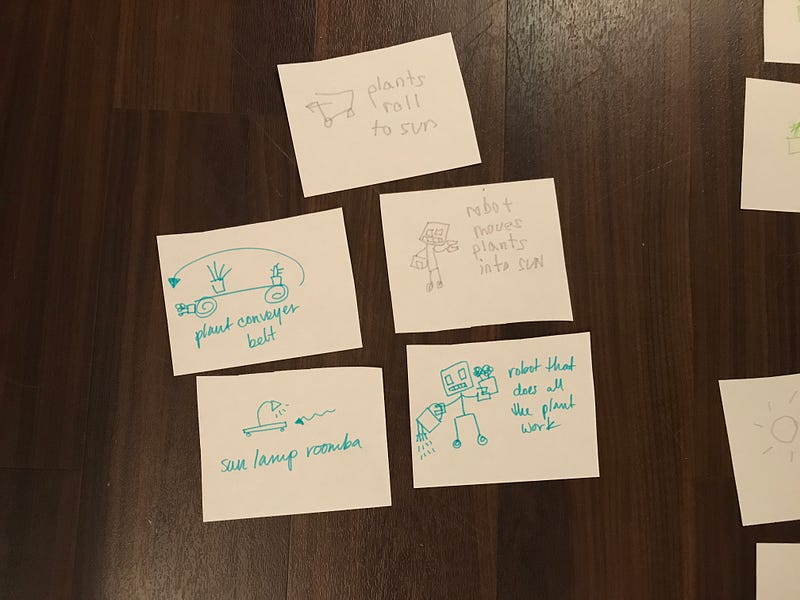 plants
roll
to sun
robot
moves
plants
into sun
plant conveyer
belt
sun lamp roomba
robot that
does all
the plant
work